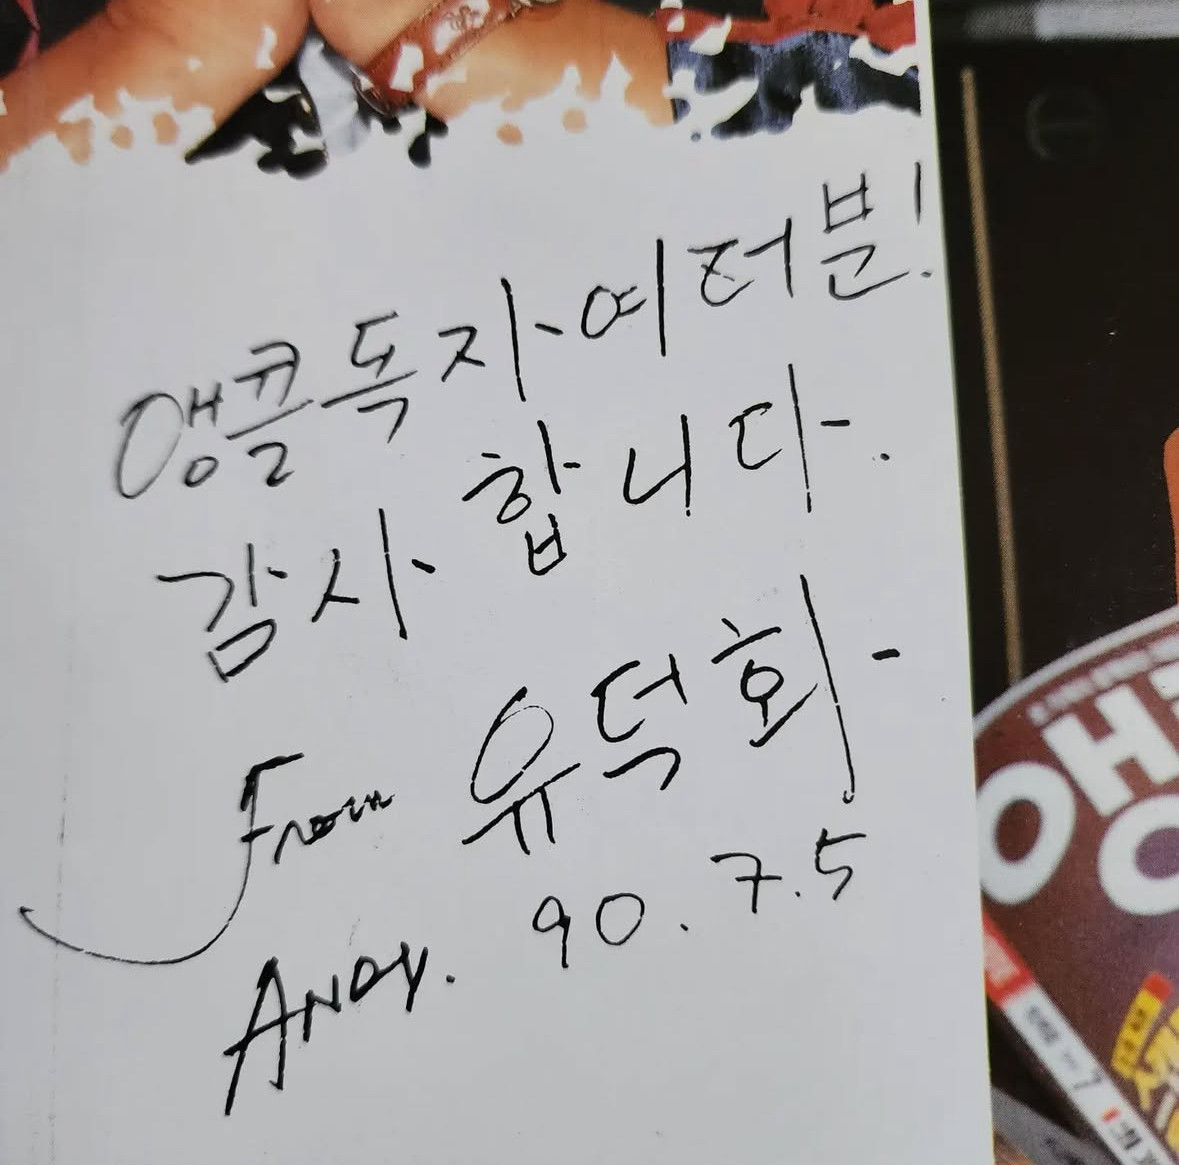 앵콜독자여러분!
감사합니다.
From 유덕희-
ANDY. 90.7.5